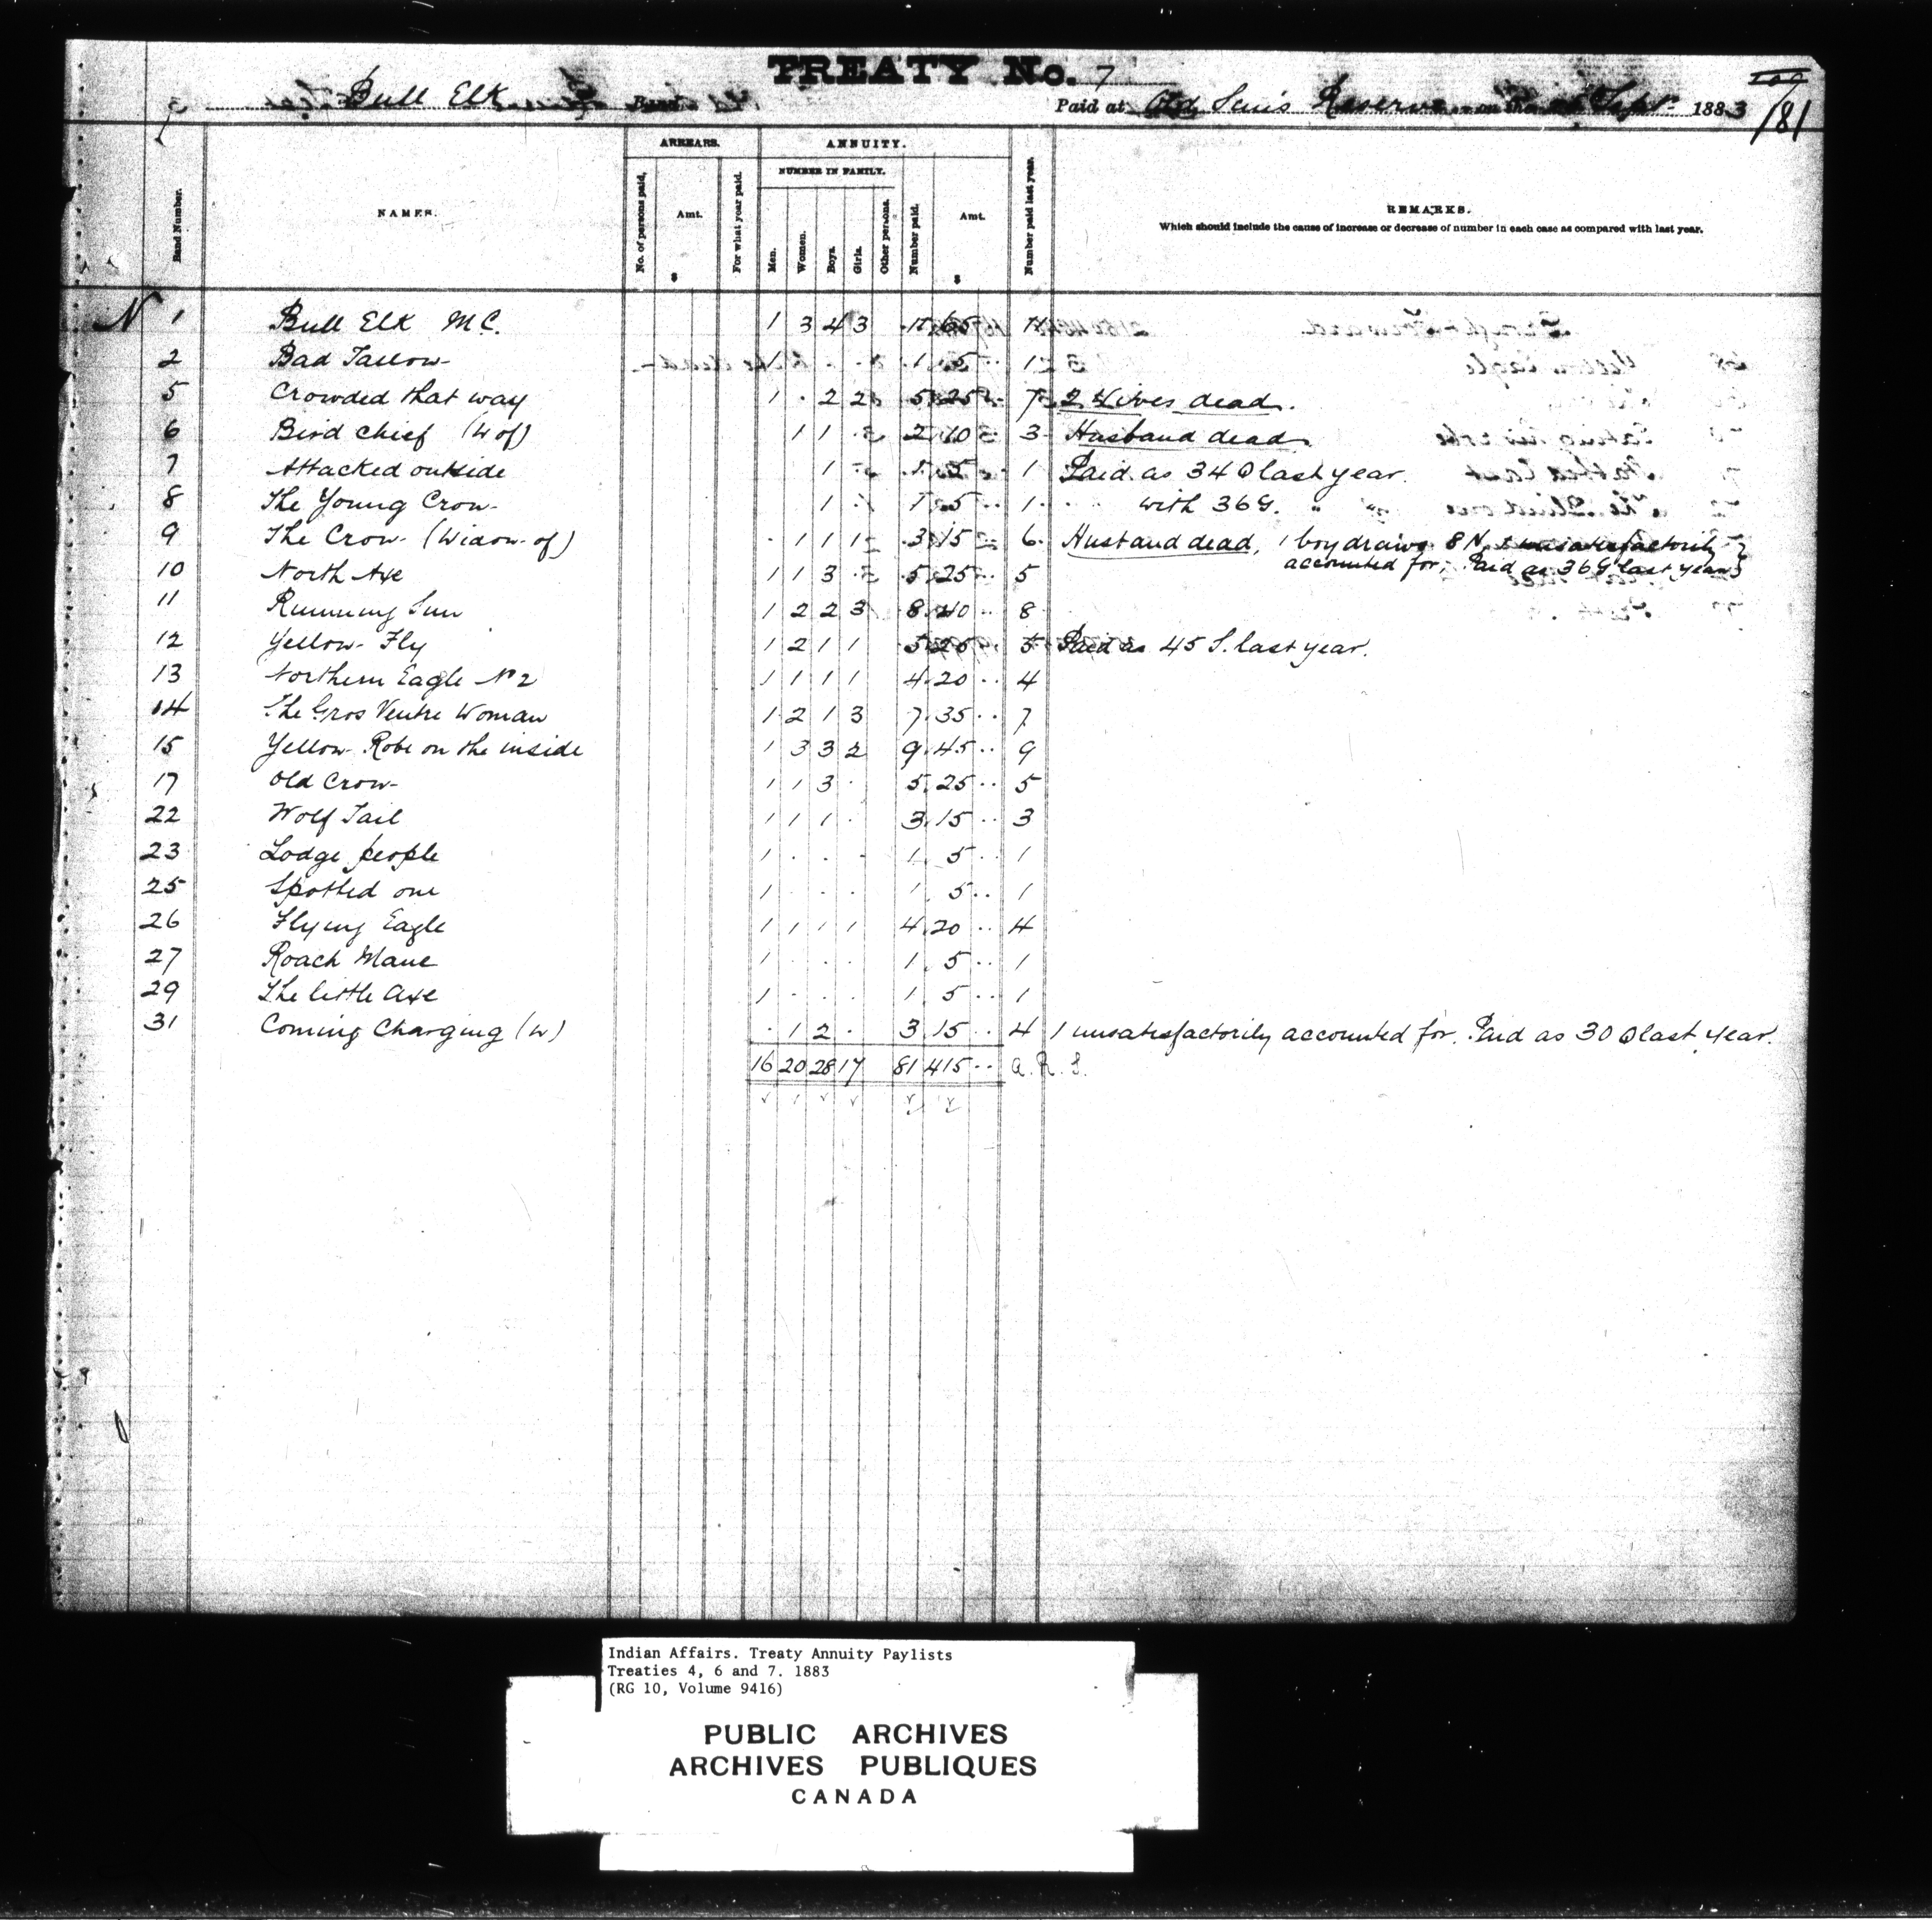 TREATY No. 7
Bull Elk Band
Paid at Old Sun's Reserve on the Sept 1883
181
ARREARS. ANNUITY.
NUMBER IN FAMILY.
Band Number. NAMES. No. of persons paid, Amt. $ For what year paid. Men. Women. Boys. Girls. Other persons. Number paid. Amt. $ Number paid last year. REMARKS.
Which should include the cause of increase or decrease of number in each case as compared with last year.
N 1 Bull Elk M.C. 1 3 4 3 65
2 Bad Tallow 1 1 5 1
5 Crowded that way 1 . 2 2 5 25 7 2 Wives dead.
6 Bird Chief (W of) 1 1 2 10 3 Husband dead
7 Attacked outside 1 1 5 1 Paid as 34 O last year.
8 The Young Crow 1 1 5 1 " with 36 G. " "
9 The Crow (Widow of) . 1 1 1 3 15 6 Husband dead, 1 boy draws 8 N, 2 unsatisfactorily
accounted for, Paid as 36 G last year
10 North Axe 1 1 3 . 5 25 5
11 Running Sun 1 2 2 3 8 40 8
12 Yellow Fly 1 2 1 1 5 25 5 Paid as 45 S. last year.
13 Northern Eagle No 2 1 1 1 1 4 20 4
14 The Gros Ventre Woman 1 2 1 3 7 35 7
15 Yellow Robe on the inside 1 3 3 2 9 45 9
17 Old Crow 1 1 3 . 5 25 5
22 Wolf Tail 1 1 1 . 3 15 3
23 Lodge people 1 . . . 1 5 1
25 Spotted one 1 . . . 1 5 1
26 Flying Eagle 1 1 1 1 4 20 4
27 Roach Mane 1 . . . 1 5 1
29 The little Axe 1 . . . 1 5 1
31 Coming Charging (W) . 1 2 . 3 15 4 1 unsatisfactorily accounted for. Paid as 30 O last year.
16 20 28 17 81 415
Indian Affairs. Treaty Annuity Paylists
Treaties 4, 6 and 7. 1883
(RG 10, Volume 9416)
PUBLIC ARCHIVES
ARCHIVES PUBLIQUES
CANADA